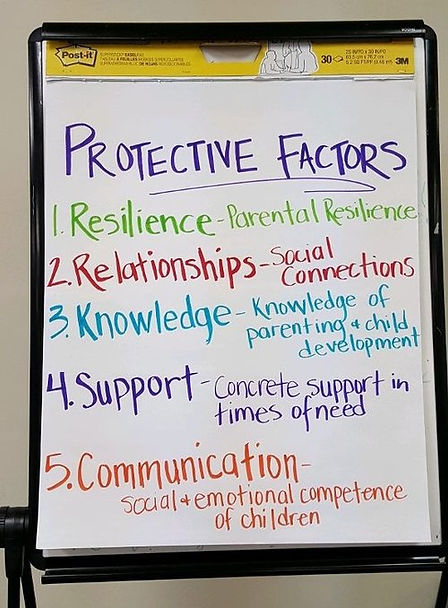 Post-it
30
25 IN PO x 30 IN PO
3M
PROTECTIVE FACTORS
1. Resilience - Parental Resilience
2. Relationships - Social
Connections
3. Knowledge - Knowledge of
parenting & child
development
4. Support - Concrete support in
times of need
5. Communication -
social & emotional competence
of children